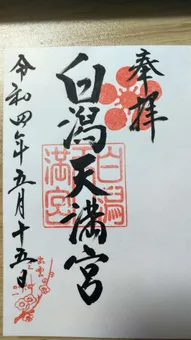 奉拝
白潟天満宮
白潟
天満宮
令和四年五月十五日